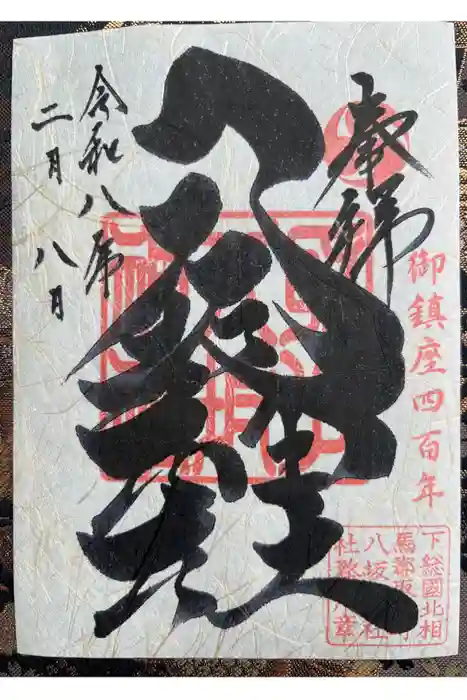 奉拝
御鎮座四百年
八坂神社
令和八年
二月八日
下総國北相
馬郡取
八坂
社